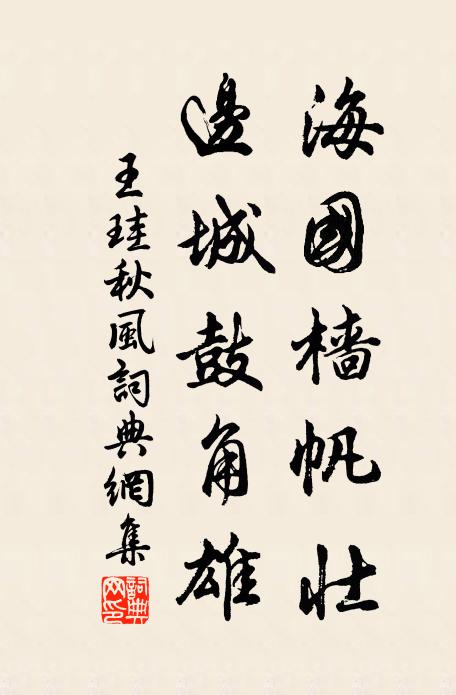 海國檣帆壯
邊城鼓角雄
王珪秋風詞典網集
詞典網印